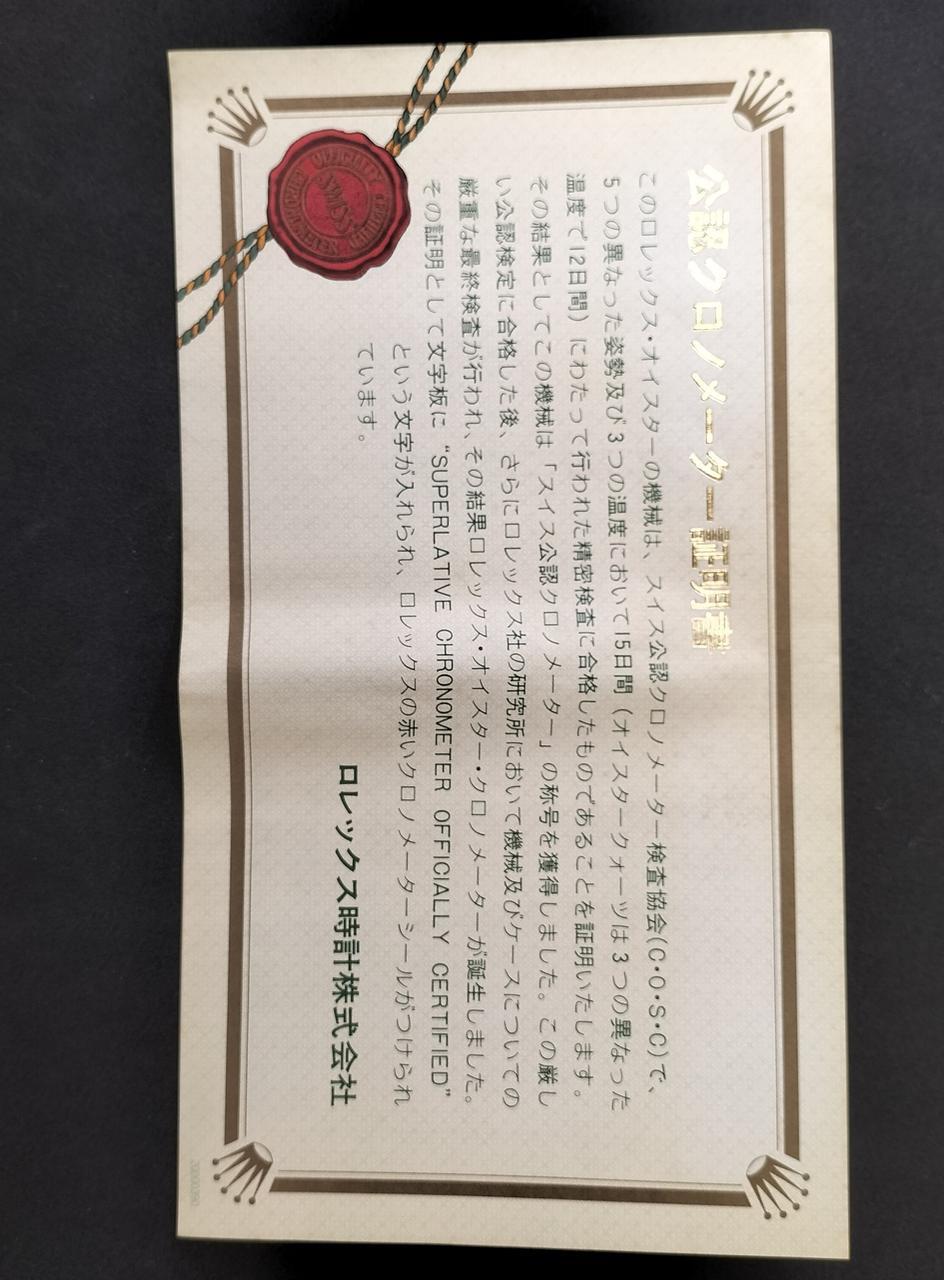 公認クロノメーター証明書
このロレックス・オイスターの機械は、スイス公認クロノメーター検査協会(C・O・S・C)で、
5つの異なった姿勢及び3つの温度において15日間（オイスタークォーツは3つの異なった
温度で12日間）にわたって行われた精密検査に合格したものであることを証明いたします。
その結果としてこの機械は「スイス公認クロノメーター」の称号を獲得しました。この厳し
い公認検定に合格した後、さらにロレックス社の研究所において機械及びケースについての
厳重な最終検査が行われ、その結果ロレックス・オイスター・クロノメーターが誕生しました。
その証明として文字板に “SUPERLATIVE CHRONOMETER OFFICIALLY CERTIFIED”
という文字が入れられ、ロレックスの赤いクロノメーターシールがつけられ
ています。
ロレックス時計株式会社
OFFICIALLY
SWISS